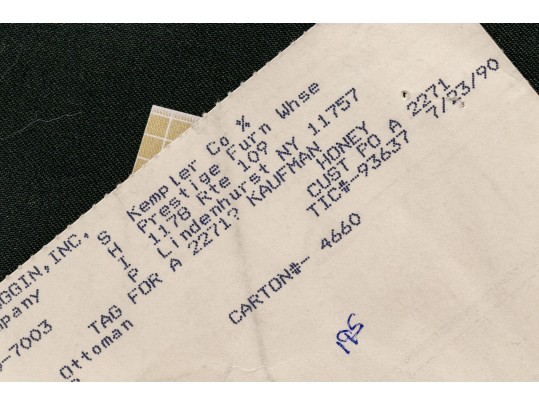 S Kempler Co %
H Prestige Furn Whse
I 1178 Rte 109
P Lindenhurst NY 11757
TAG FOR A 2271? KAUFMAN
HONEY
CUST PO A 2271
TIC#-93637 7/23/90
GGIN,INC.
mpany
-7003
Ottoman
CARTON#- 4660